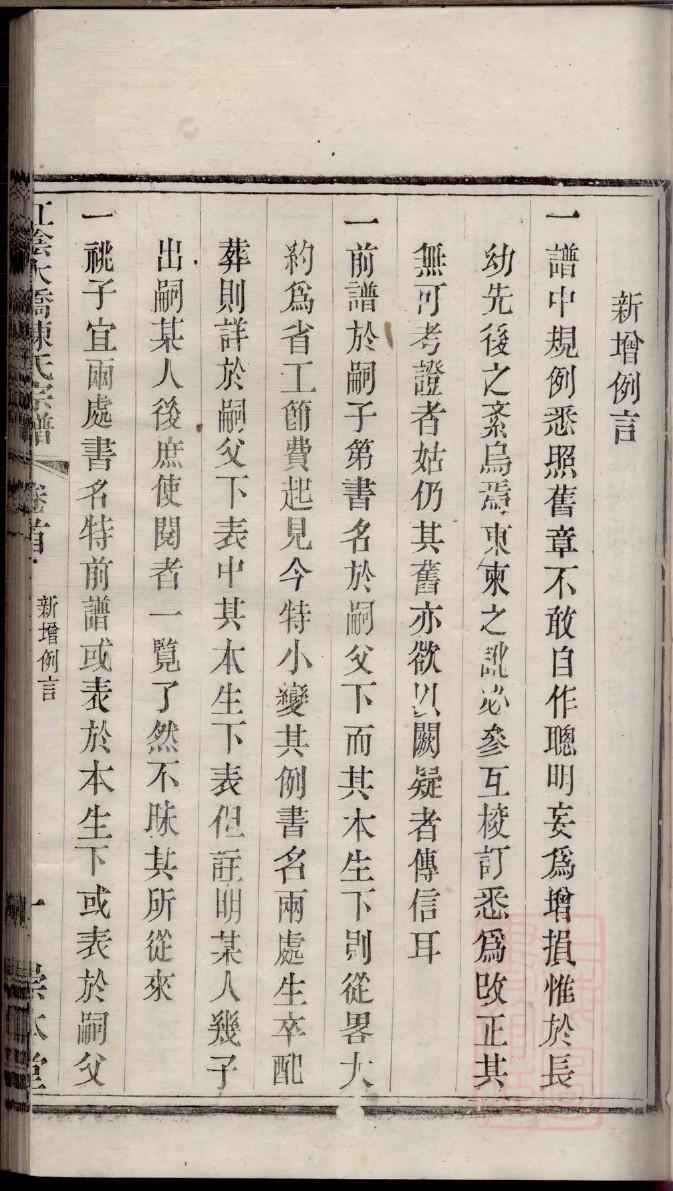 新增例言
一譜中規例悉照舊章不敢自作聰明妄爲增損惟於長
幼先後之紊烏焉東柬之訛必參互校訂悉爲改正其
無可考證者姑仍其舊亦欲以闕疑者傳信耳
一前譜於嗣子第書名於嗣父下而其本生下則從畧大
約爲省工節費起見今特小變其例書名兩處生卒配
葬則詳於嗣父下表中其本生下表但註明某人幾子
出嗣某人後庶使閱者一覧了然不昧其所從來
一祧子宜兩處書名特前譜或表於本生下或表於嗣父
江陰大橋陳氏宗譜 卷首 新增例言 一 崇本堂